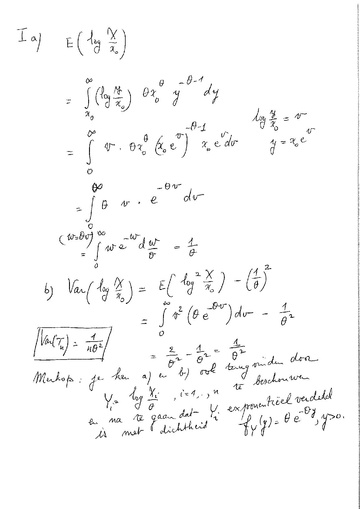 I a) E(log X/x₀)
= ∫_{x₀}^{∞} (log y/x₀) θx₀^θ y^{-θ-1} dy
= ∫_0^∞ v · θx₀^θ (x₀e^v)^{-θ-1} x₀e^v dv
log y/x₀ = v
y = x₀e^v
= ∫_0^∞ θ v · e^{-θv} dv
(w=θv) = ∫_0^∞ w e^{-w} dw/θ = 1/θ
b) Var(log X/x₀) = E(log² X/x₀) - (1/θ)²
= ∫_0^∞ v² (θ e^{-θv}) dv - 1/θ²
Var(Tₙ) = 1/nθ²
= 2/θ² - 1/θ² = 1/θ²
Merkop: je kan a) en b) ook terugvinden door
Yᵢ = log Xᵢ/θ, i=1,..,n te beschouwen
en na te gaan dat Yᵢ exponentieel verdeeld
is met dichtheid f_Y(y) = θ e^{-θy}, y>0.